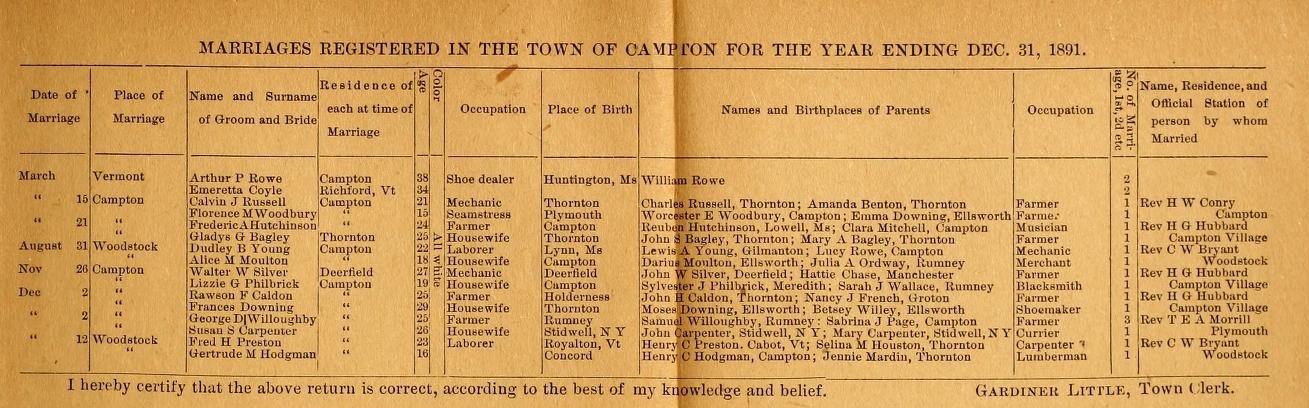 MARRIAGES REGISTERED IN THE TOWN OF CAMPTON FOR THE YEAR ENDING DEC. 31, 1891.
Date of Marriage | Place of Marriage | Name and Surname of Groom and Bride | Residence of each at time of Marriage | Age | Color | Occupation | Place of Birth | Names and Birthplaces of Parents | Occupation | No. of Marriage, 1st, 2d etc | Name, Residence, and Official Station of person by whom Married
March Vermont Arthur P Rowe Campton 38 Shoe dealer Huntington, Ms William Rowe 2
Emeretta Coyle Richford, Vt 34 2
“ 15 Campton Calvin J Russell Campton 21 Mechanic Thornton Charles Russell, Thornton; Amanda Benton, Thornton Farmer 1 Rev H W Conry
Florence M Woodbury “ 15 Seamstress Plymouth Worcester E Woodbury, Campton; Emma Downing, Ellsworth Farmer 1 Campton
“ 21 “ Frederic A Hutchinson “ 24 Farmer Campton Reuben Hutchinson, Lowell, Ms; Clara Mitchell, Campton Musician 1 Rev H G Hubbard
“ Gladys G Bagley Thornton 25 All white Housewife Thornton John S Bagley, Thornton; Mary A Bagley, Thornton Farmer 1 Campton Village
August 31 Woodstock Dudley B Young Campton 22 Laborer Lynn, Ms Lewis A Young, Gilmanton; Lucy Rowe, Campton Mechanic 1 Rev C W Bryant
“ Alice M Moulton “ 18 Housewife Campton Darius Moulton, Ellsworth; Julia A Ordway, Rumney Merchant 1 Woodstock
Nov 26 Campton Walter W Silver Deerfield 27 Mechanic Deerfield John W Silver, Deerfield; Hattie Chase, Manchester Farmer 1 Rev H G Hubbard
“ Lizzie G Philbrick Campton 19 Housewife Campton Sylvester J Philbrick, Meredith; Sarah J Wallace, Rumney Blacksmith 1 Campton Village
Dec 2 “ Rawson F Caldon “ 25 Farmer Holderness John H Caldon, Thornton; Nancy J French, Groton Farmer 1 Rev H G Hubbard
“ Frances Downing “ 29 Housewife Thornton Moses Downing, Ellsworth; Betsey Willey, Ellsworth Shoemaker 1 Campton Village
“ 2 “ George D Willoughby “ 25 Farmer Rumney Samuel Willoughby, Rumney; Sabrina J Page, Campton Farmer 3 Rev T E A Morrill
“ Susan S Carpenter “ 26 Housewife Stidwell, N Y John Carpenter, Stidwell, N Y; Mary Carpenter, Stidwell, N Y Currier 1 Plymouth
“ 12 Woodstock Fred H Preston “ 23 Laborer Royalton, Vt Henry C Preston. Cabot, Vt; Selina M Houston, Thornton Carpenter 1 Rev C W Bryant
“ Gertrude M Hodgman “ 16 Concord Henry C Hodgman, Campton; Jennie Mardin, Thornton Lumberman 1 Woodstock
I hereby certify that the above return is correct, according to the best of my knowledge and belief. GARDINER LITTLE, Town Clerk.